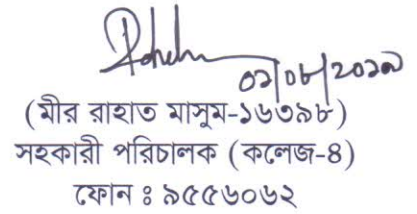 (মীর রাহাত মাসুম-১৬৩৯৮)
সহকারী পরিচালক (কলেজ-৪)
ফোন ঃ ৯৫৫৬০৬২